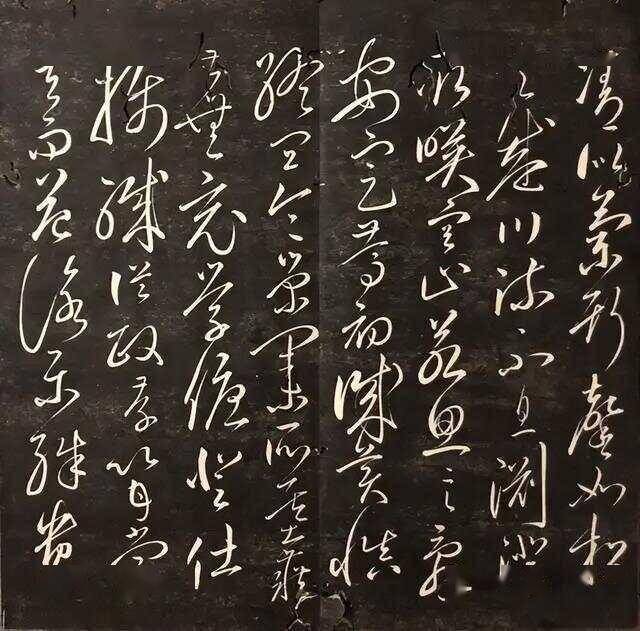 清似蘭斯馨如松
之盛川流不息淵澄
取映容止若思言辭
安定篤初誠美慎
終宜令榮業所基籍
甚無竟學優登仕
攝職從政存以甘棠
去而益詠樂殊貴